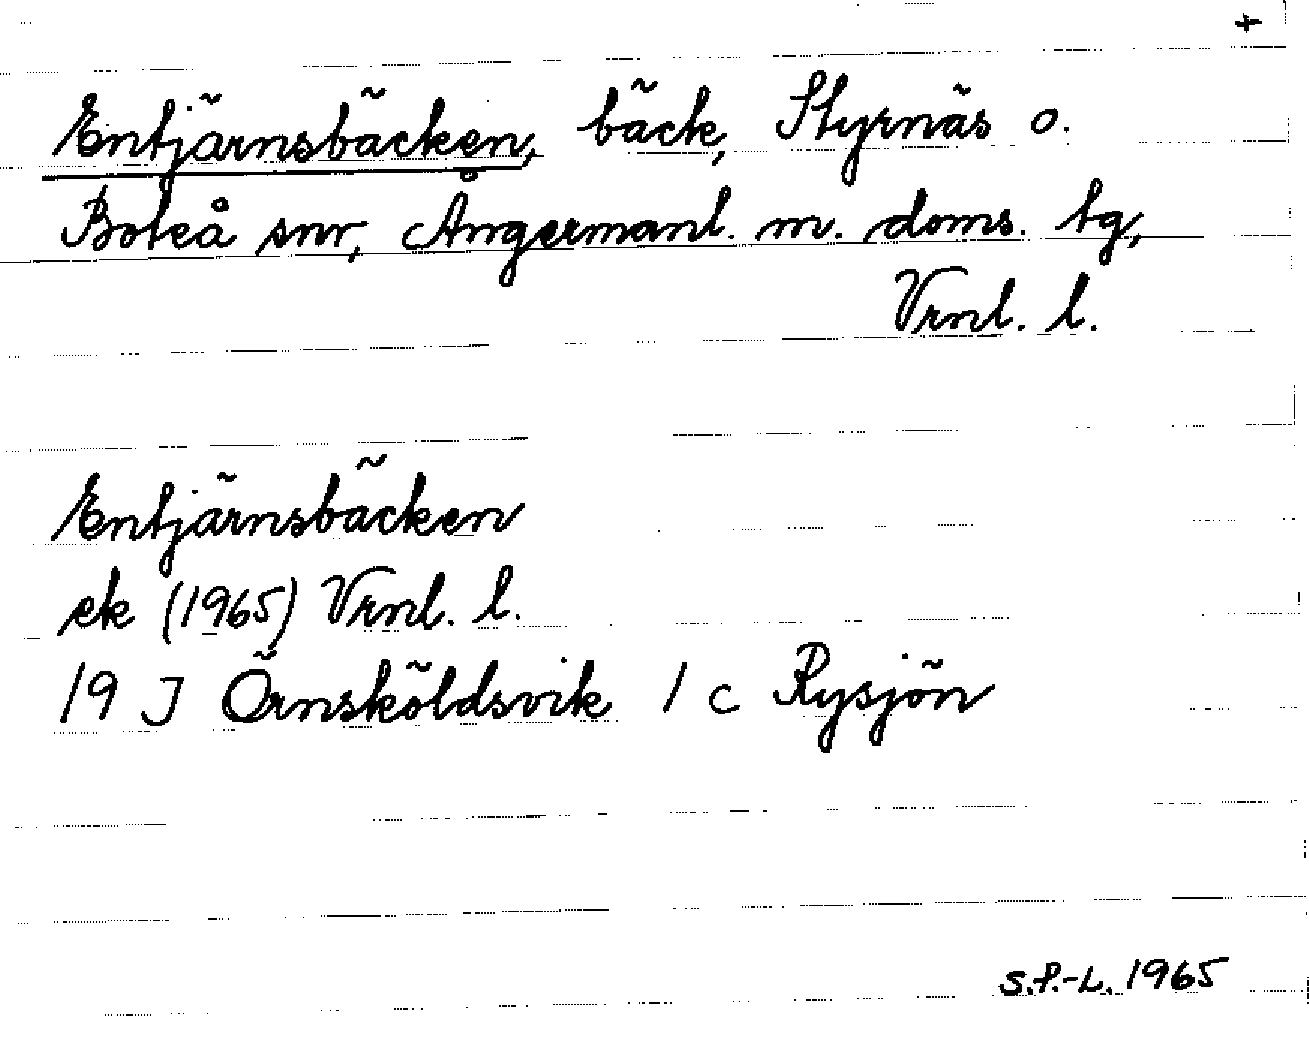 +
Entjärnsbäcken, bäck, Styrnäs o.
Boteå snr, Ångermanl. m. doms. tg,
Vrnl. l.
Entjärnsbäcken
ek (1965) Vrnl. l.
19 J Örnsköldsvik 1 c Rysjön
S.P.-L. 1965